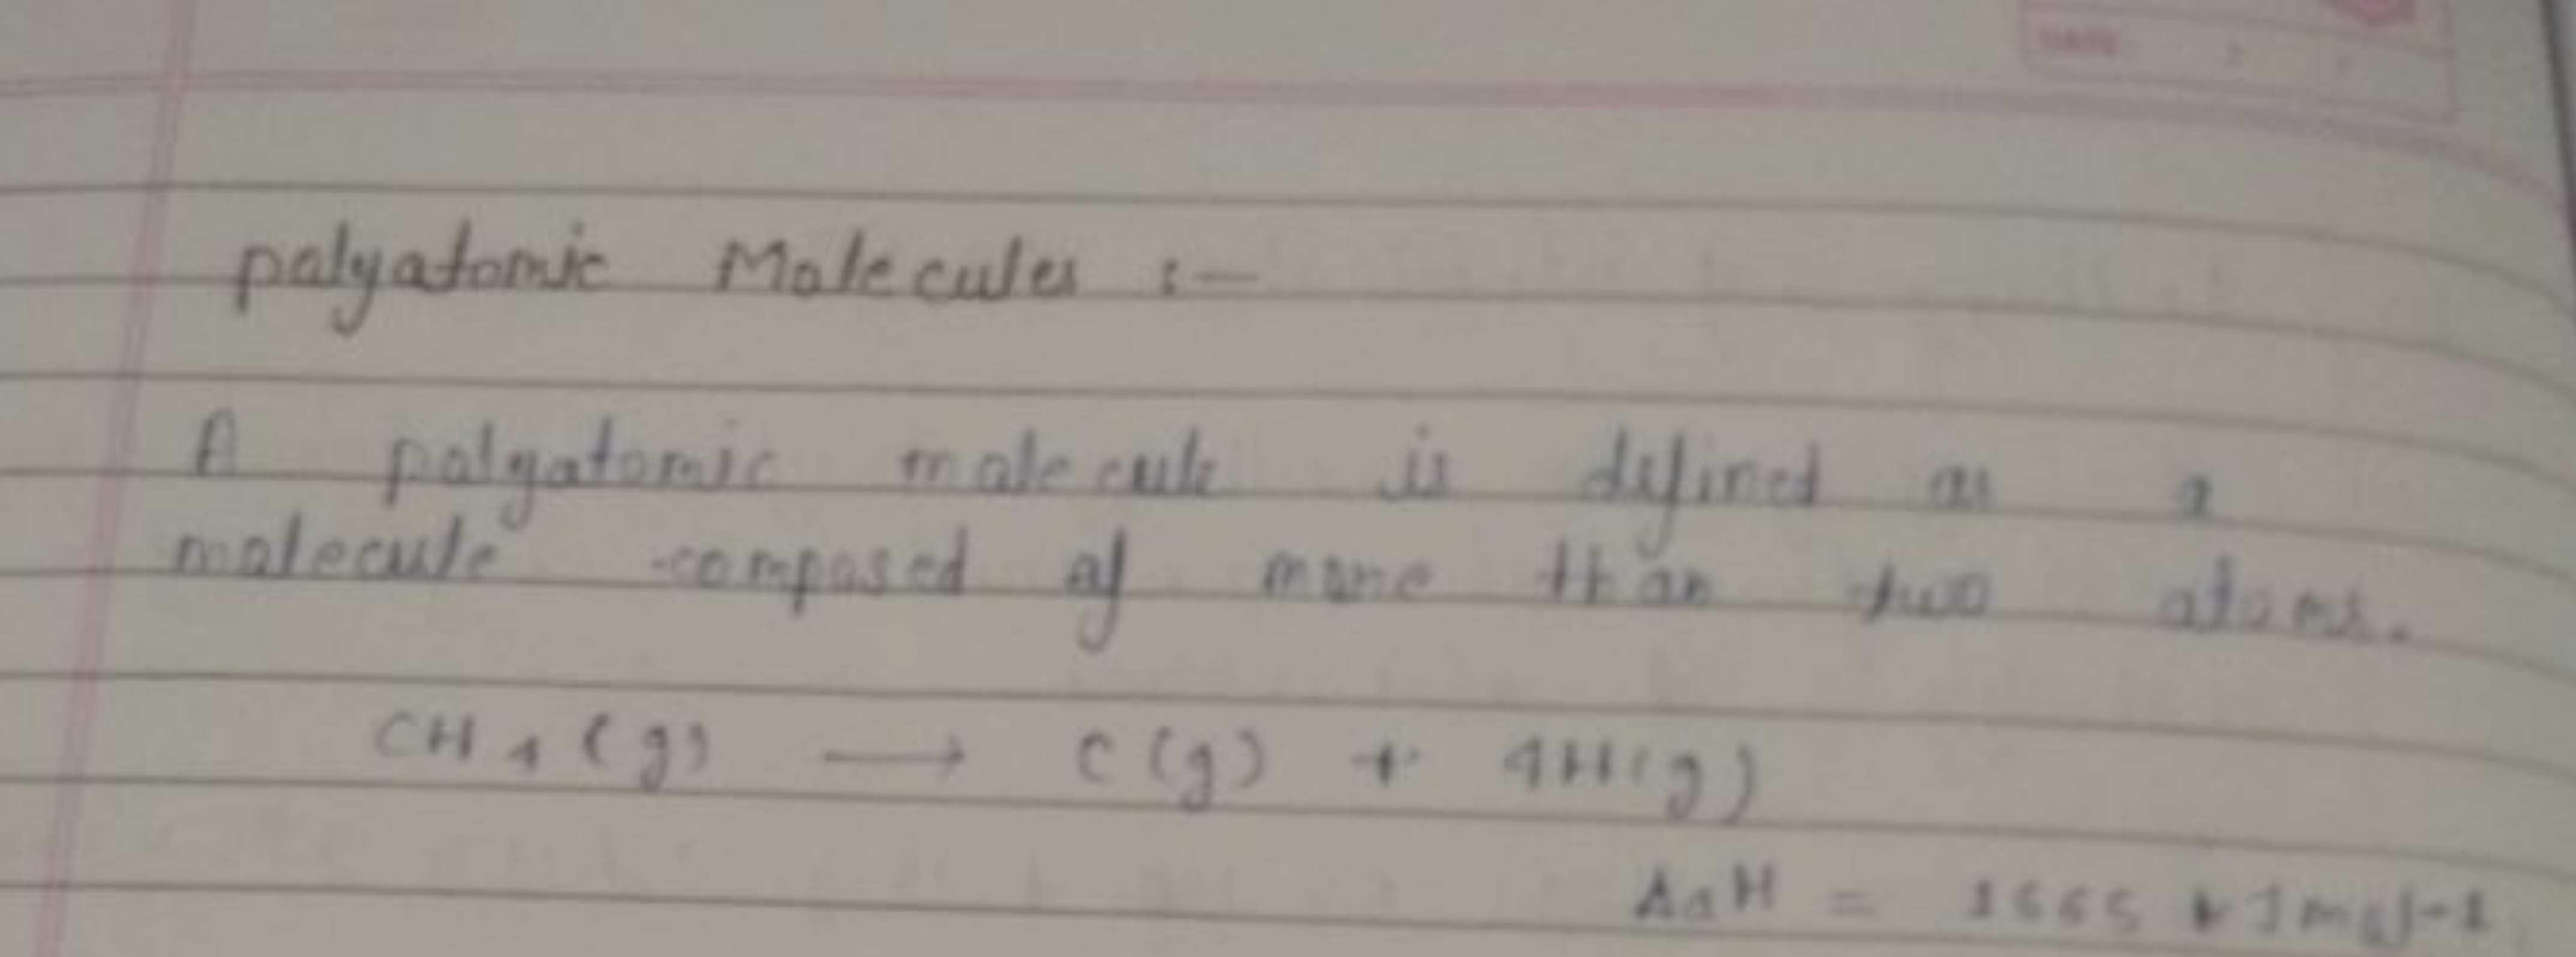 DATE
polyatomic Molecules :-
A polyatomic molecule is defined as a
molecule composed of more than two atoms.
CH4(g) → C(g) + 4H(g)
ΔaH = 1665 kJmol-1